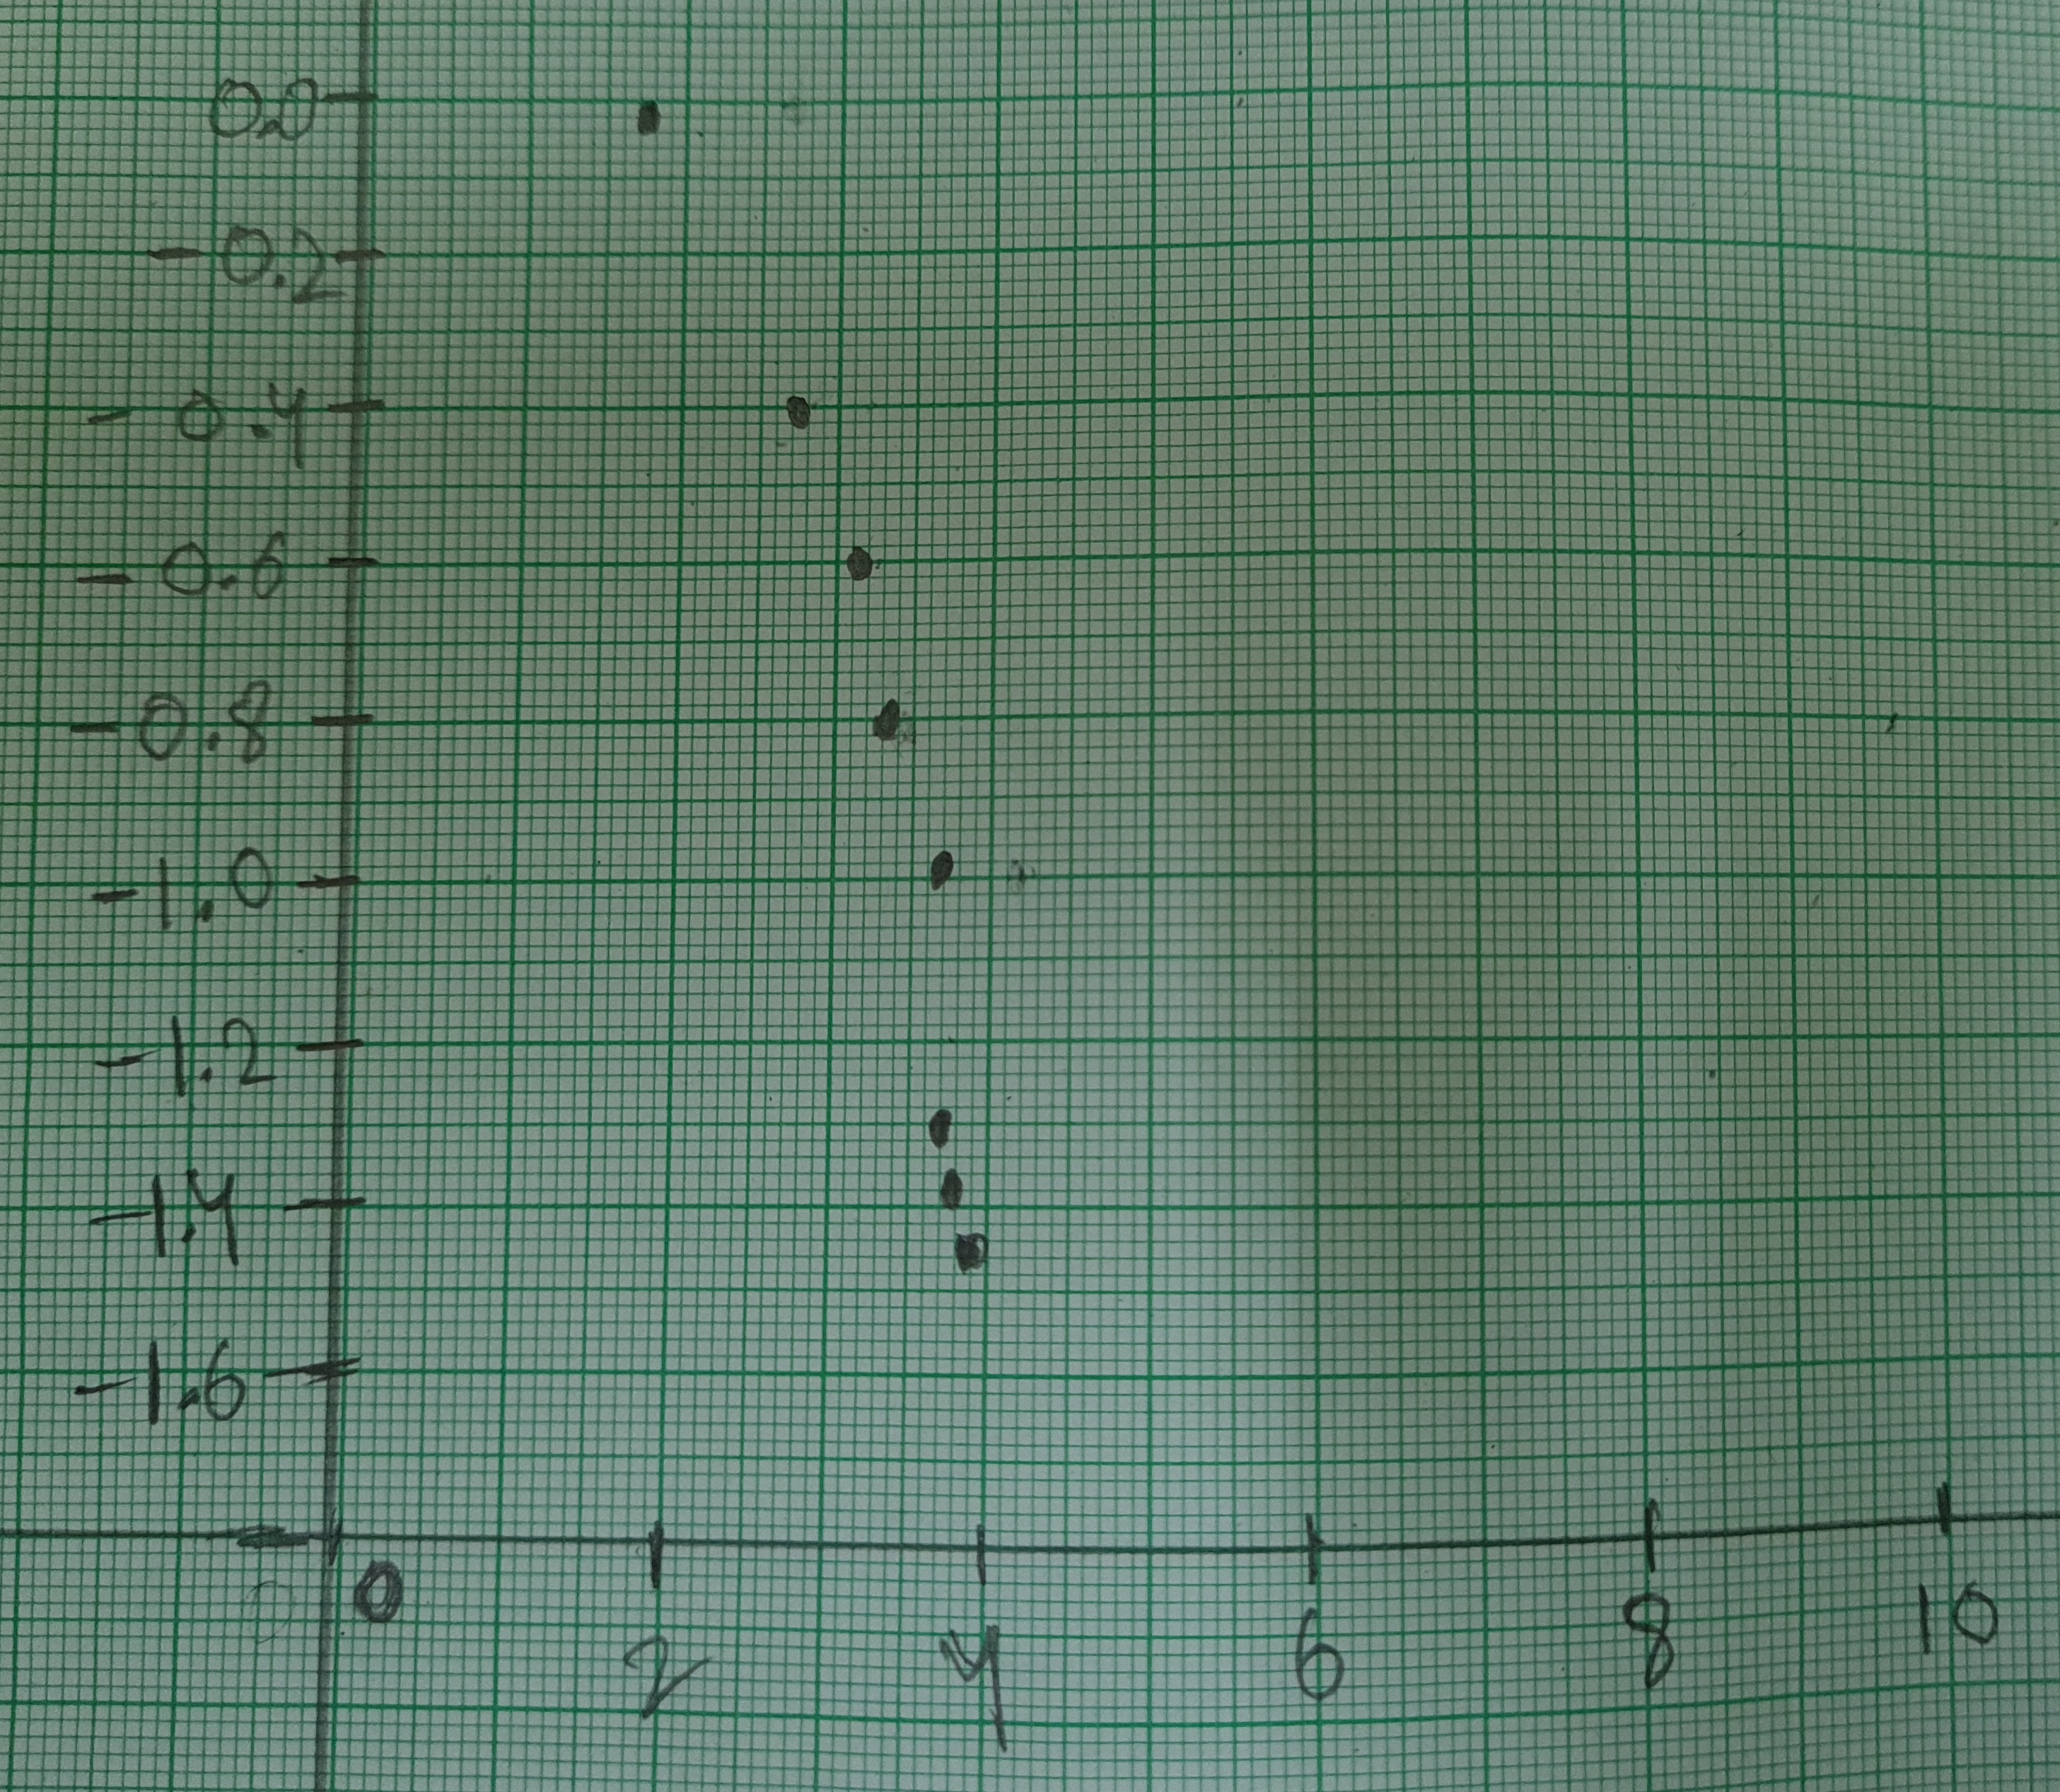 0.0
-0.2
-0.4
-0.6
-0.8
-1.0
-1.2
-1.4
-1.6
0 2 4 6 8 10